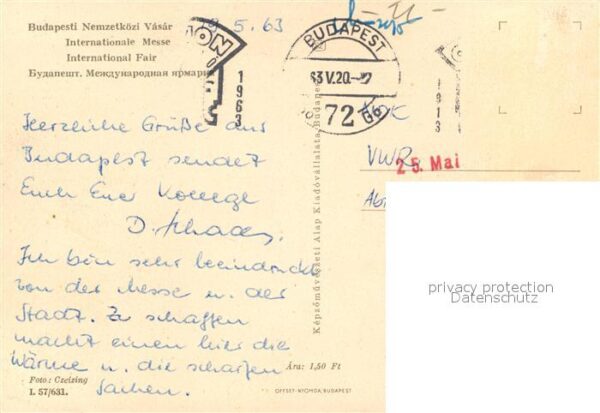 Budapesti Nemzetközi Vásár
Internationale Messe
International Fair
Будапешт. Международная ярмарк
19.5.63
1963
BUDAPEST
63 V.20.-
72
1963
VWR
25. Mai
Herzliche Grüße aus
Budapest sendet
Euch Euer Kollege
D. Schade.
Ich bin sehr beeindruckt
von der Messe u. der
Stadt. Zu schaffen
macht einem hier die
Wärme u. die scharfen
Sachen.
Képzőművészeti Alap Kiadóvállalata, Budapest
Ára: 1,50 Ft
Foto: Czeizing
I. 57/631.
OFFSET-NYOMDA, BUDAPEST
privacy protection
Datenschutz